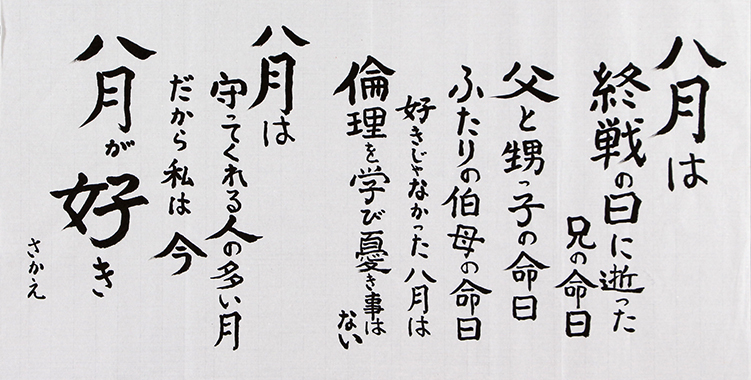 八月は
終戦の日に逝った
兄の命日
父と甥っ子の命日
ふたりの伯母の命日
好きじゃなかった八月は
倫理を学び憂き事は
ない
八月は
守ってくれる人の多い月
だから私は今
八月が好き
さかえ